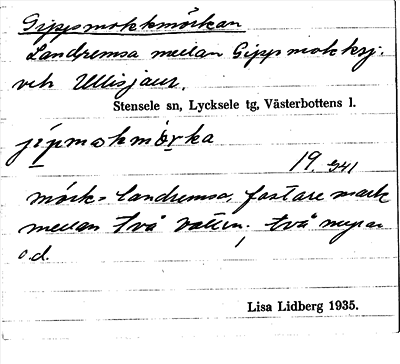 Gippsmokkmörkan
Landremsa mellan Gippmokksj.
och Ullisjaur.
Stensele sn, Lycksele tg, Västerbottens l.
jípmakmörka
19. 941
mörk = landremsa, fastare mark
mellan två vatten, två myrar
o.d.
Lisa Lidberg 1935.